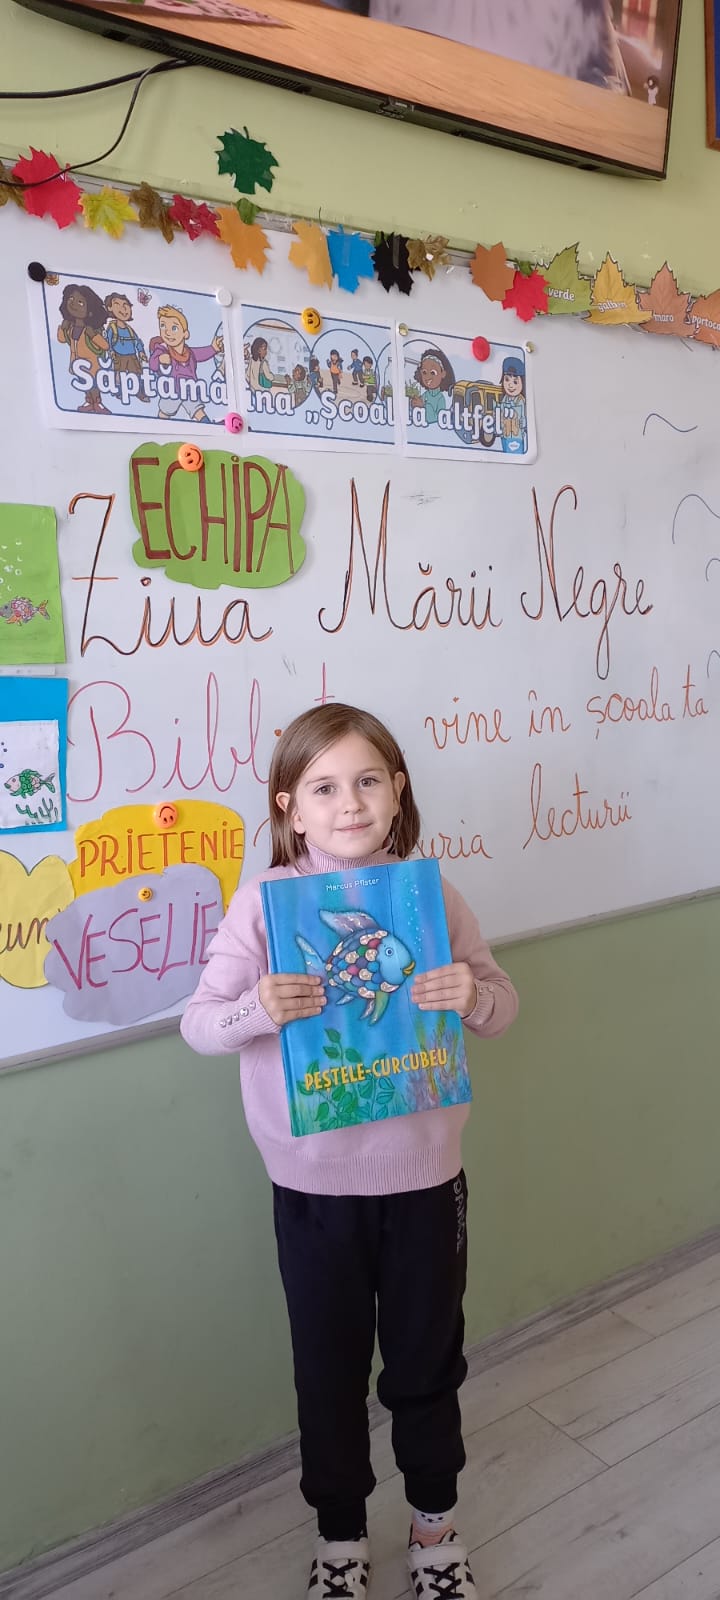 verde
galben
maro
Săptămâna „Școala altfel”
ECHIPA
Ziua Mării Negre
vine în școala ta
lecturii
PRIETENIE
VESELIE
Marcus Pfister
PEȘTELE-CURCUBEU